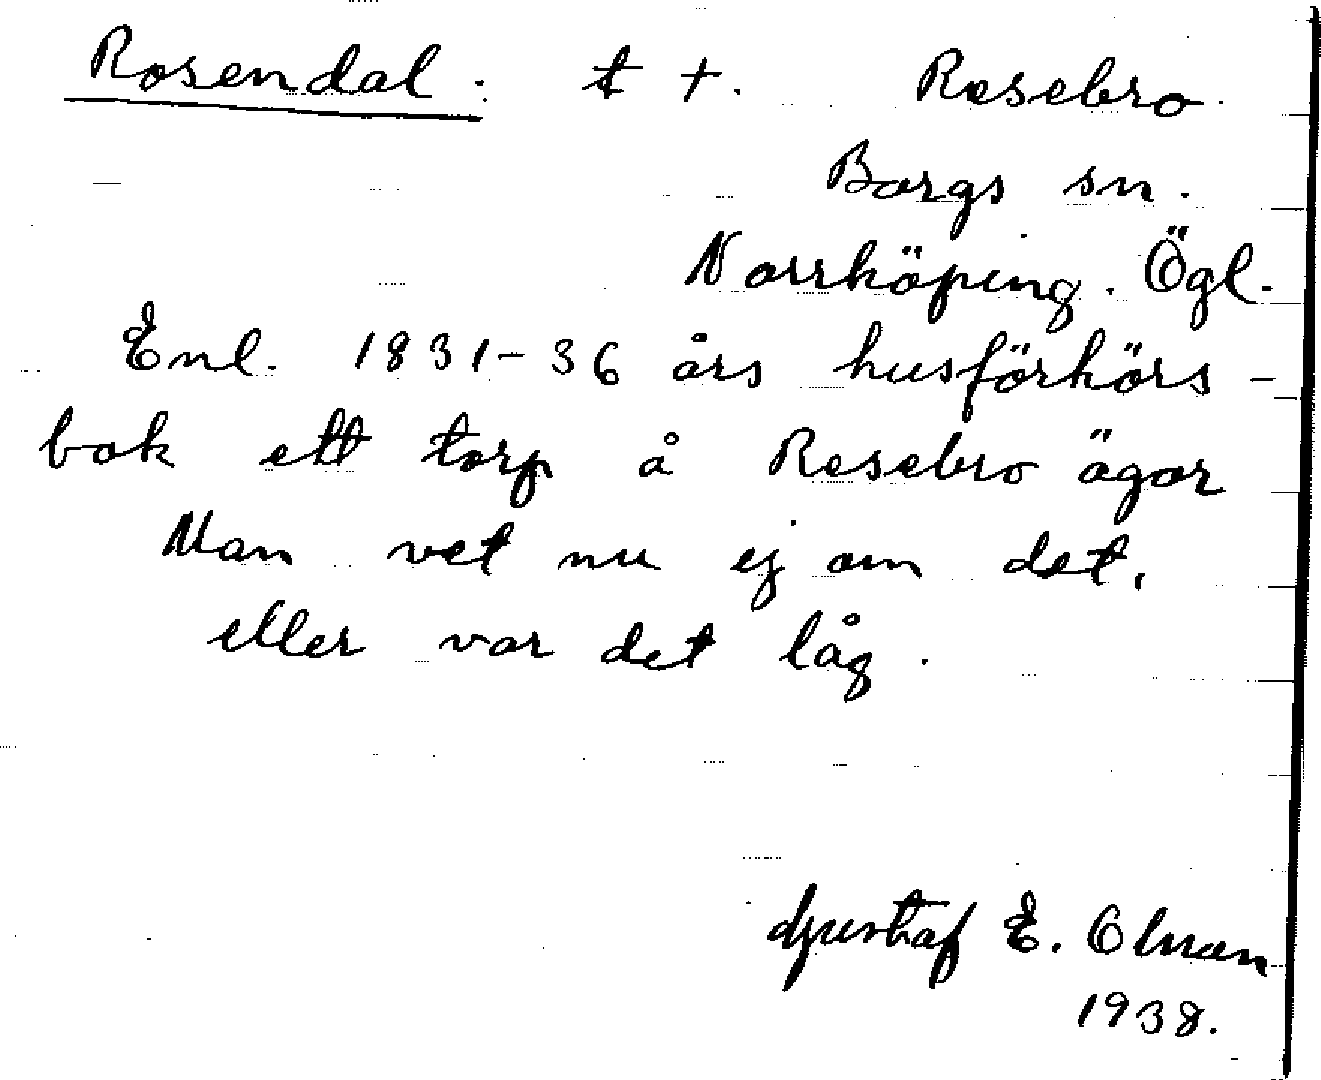 Rosendal. t +. Resebro.
Borgs sn.
Norrköping. Ögl.
Enl. 1831-36 års husförhörs-
bok ett torp å Resebro ägor
Man vet nu ej om det,
eller var det låg.
Gustaf E. Olman
1938.